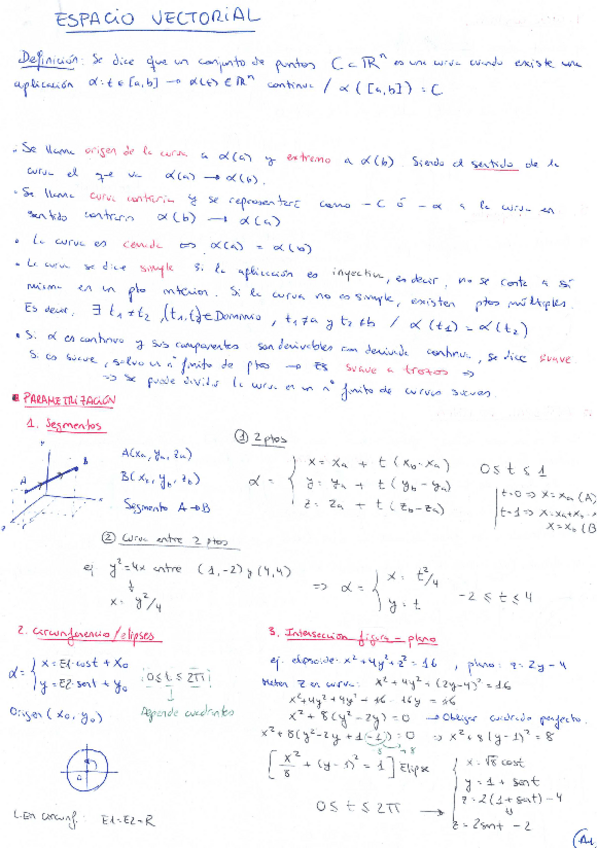 ESPACIO VECTORIAL
Definición: Se dice que un conjunto de puntos C ⊂ ℝⁿ es una curva cuando existe una
aplicación α: t ∈ [a,b] → α(t) ∈ ℝⁿ continua / α([a,b]) = C
• Se llama origen de la curva a α(a) y extremo a α(b). Siendo el sentido de la
curva el que va α(a) → α(b).
• Se llama curva contraria y se representará como -C ó -α a la curva en
sentido contrario α(b) → α(a)
• La curva es cerrada ⇔ α(a) = α(b)
• La curva se dice simple si la aplicación es inyectiva, es decir, no se corta a sí
misma en un pto interior. Si la curva no es simple, existen ptos múltiples.
Es decir, ∃ t₁ ≠ t₂, (t₁,t₂) ∈ Dominio, t₁≠a y t₂≠b / α(t₁) = α(t₂)
• Si α es continua y sus componentes son derivables con derivada continua, se dice suave
Si es suave, salvo un nº finito de ptos → Es suave a trozos ⇒
⇒ Se puede dividir la curva en un nº finito de curvas suaves.
PARAMETRIZACIÓN
1. Segmentos
① 2 ptos
A(xa, ya, za)
B(xb, yb, zb)
Segmento A→B
A
B
α = { x = xa + t (xb - xa)
y = ya + t (yb - ya)
z = za + t (zb - za)
0 ≤ t ≤ 1
t=0 ⇒ x = xa (A)
t=1 ⇒ x = xa + xb -
x = xb (B
② Curva entre 2 ptos
ej y² = 4x entre (1,-2) y (4,4)
x = y²/4
⇒ α = { x = t²/4
y = t
-2 ≤ t ≤ 4
2. Circunferencia/elipses
α = { x = E1·cost + x₀
y = E2·sent + y₀
0 ≤ t ≤ 2π
Depende cuadrantes
Origen (x₀, y₀)
En circunf: E1=E2=R
3. Intersección figura - plano
ej. elipsoide: x² + 4y² + z² = 16, plano: z = 2y - 4
Meter z en curva: x² + 4y² + (2y-4)² = 16
x² + 4y² + 4y² + 16 - 16y = 16
x² + 8(y² - 2y) = 0 → Obligar cuadrado perfecto.
x² + 8(y² - 2y + 1 - 1) = 0 ⇒ x² + 8(y-1)² = 8
[x²/8 + (y-1)² = 1] Elipse
0 ≤ t ≤ 2π →
{ x = √8 cost
y = 1 + sent
z = 2(1 + sent) - 4
z = 2sent - 2